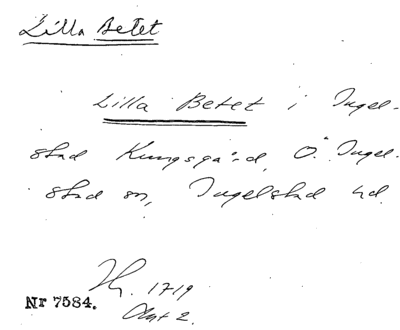 Lilla Betet
Lilla Betet i Ingel-
stad Kungsgård, Ö. Ingel-
stad sn, Ingelstad hd.
1719
Nr 7584.